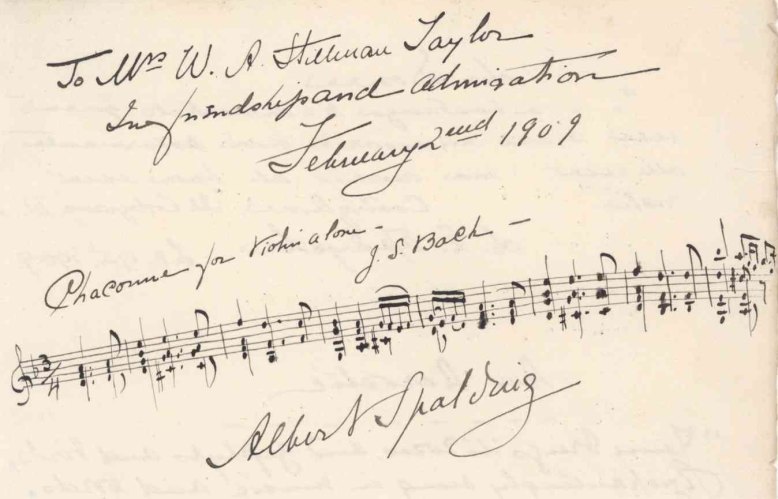 To Mrs W. A. Stillman Taylor
In friendship and admiration
February 2nd 1909
Chaconne for Violin alone -
J. S. Bach -
3
4
Albert Spalding